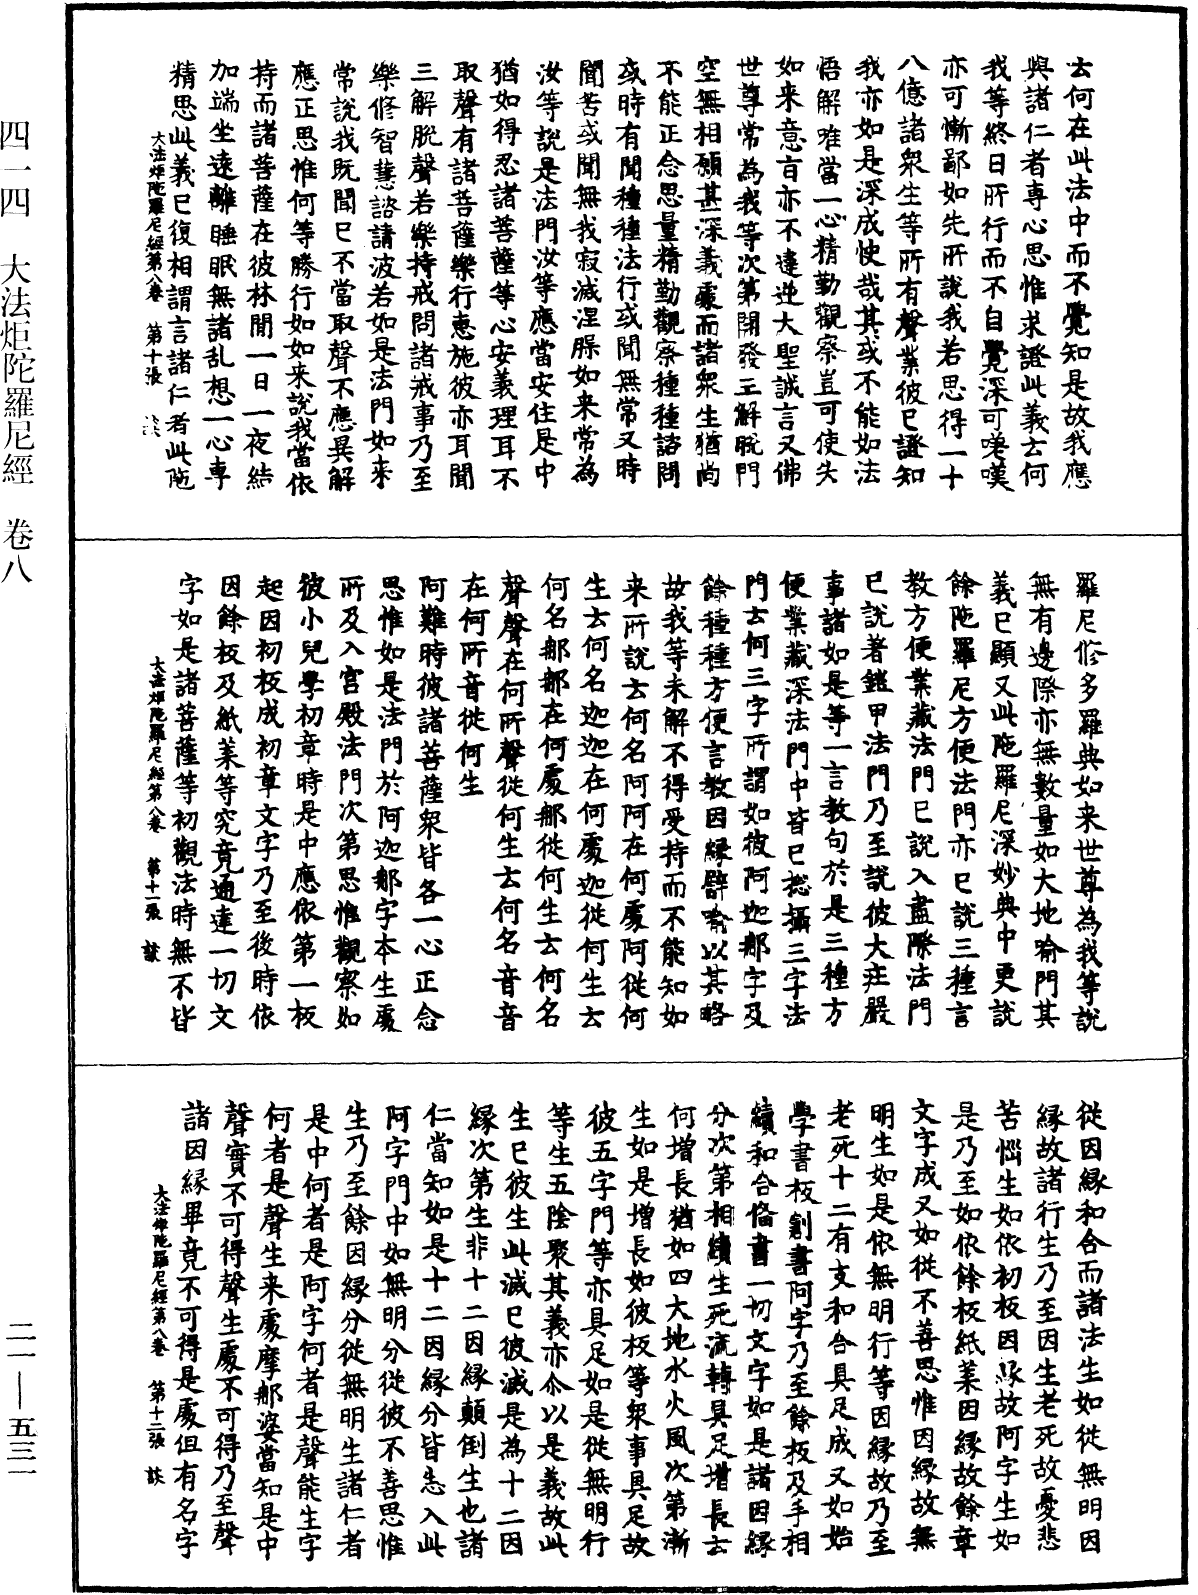 四一四　大法炬陀羅尼經　卷八
二一—五三一
云何在此法中而不覺知是故我應
與諸仁者專心思惟求證此義云何
我等終日所行而不自覺深可嗟嘆
亦可慚鄙如先所說我若思得一十
八億諸衆生等所有聲業彼已證知
我亦如是深成快哉其或不能如法
悟解唯當一心精勤觀察豈可使失
如来意言亦不違逆大聖誠言又佛
世尊常為我等次第開發三解脫門
空無相願甚深義處而諸衆生猶尚
不能正念思量精勤觀察種種諮問
或時有聞種種法行或聞無常又時
聞苦或聞無我寂滅涅脲如来常為
汝等說是法門汝等應當安住是中
猶如得忍諸菩薩等心安義理耳不
取聲有諸菩薩樂行惠施彼亦耳聞
三解脫聲若樂持戒問諸戒事乃至
樂修智慧諮請波若如是法門如来
常說我既聞已不當取聲不應異解
應正思惟何等勝行如如来說我當依
持而諸菩薩在彼林間一日一夜結
加端坐遠離睡眠無諸乱想一心專
精思此義已復相謂言諸仁者此陁
大法炬陀羅尼經第八卷　第十張
羅尼修多羅典如来世尊為我等說
無有邊際亦無數量如大地喻門其
義已顯又此陁羅尼深妙典中更說
餘陁羅尼方便法門亦已說三種言
教方便業藏法門已說入盡際法門
已說著鎧甲法門乃至說彼大庄嚴
事諸如是等一言教句於是三種方
便業藏深法門中皆已揔攝三字法
門云何三字所謂如彼阿迦那字及
餘種種方便言教因緣譬喻以其略
故我等未解不得受持而不能知如
来所說云何名阿阿在何處阿從何
生云何名迦迦在何處迦從何生云
何名那那在何處那從何生云何名
聲聲在何所聲從何生云何名音音
在何所音從何生
阿難時彼諸菩薩衆皆各一心正念
思惟如是法門於阿迦那字本生處
所及入宮殿法門次第思惟觀察如
彼小兒學初章時是中應依第一板
起因初板成初章文字乃至後時依
因餘板及紙葉等究竟通達一切文
字如是諸菩薩等初觀法時無不皆
大法炬陀羅尼經第八卷　第十一張　談
從因緣和合而諸法生如從無明因
緣故諸行生乃至因生老死故憂悲
苦惱生如依初板因緣故阿字生如
是乃至如依餘板紙葉因緣故餘章
文字成又如從不善思惟因緣故無
明生如是依無明行等因緣故乃至
老死十二有支和合具足成又如始
學書板創書阿字乃至餘板及手相
續和合俻書一切文字如是諸因緣
分次第相續生死流轉具足增長云
何增長猶如四大地水火風次第漸
生如是增長如彼板等衆事具足故
彼五字門等亦具足如是從無明行
等生五陰聚其義亦尒以是義故此
生已彼生此滅已彼滅是為十二因
緣次第生非十二因緣顛倒生也諸
仁當知如是十二因緣分皆悉入此
阿字門中如無明分從彼不善思惟
生乃至餘因緣分從無明生諸仁者
是中何者是阿字何者是聲能生字
何者是聲生来處摩那婆當知是中
聲實不可得聲生處不可得乃至聲
諸因緣畢竟不可得是處但有名字
大法炬陀羅尼經第八卷　第十二張　談